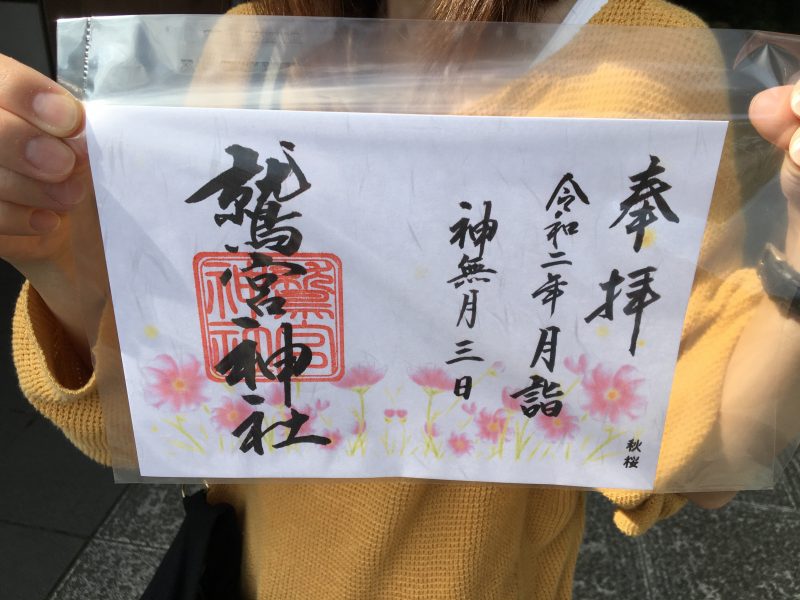 奉拝
令和二年月詣
神無月三日
鷲宮神社
鷲宮神社
秋桜